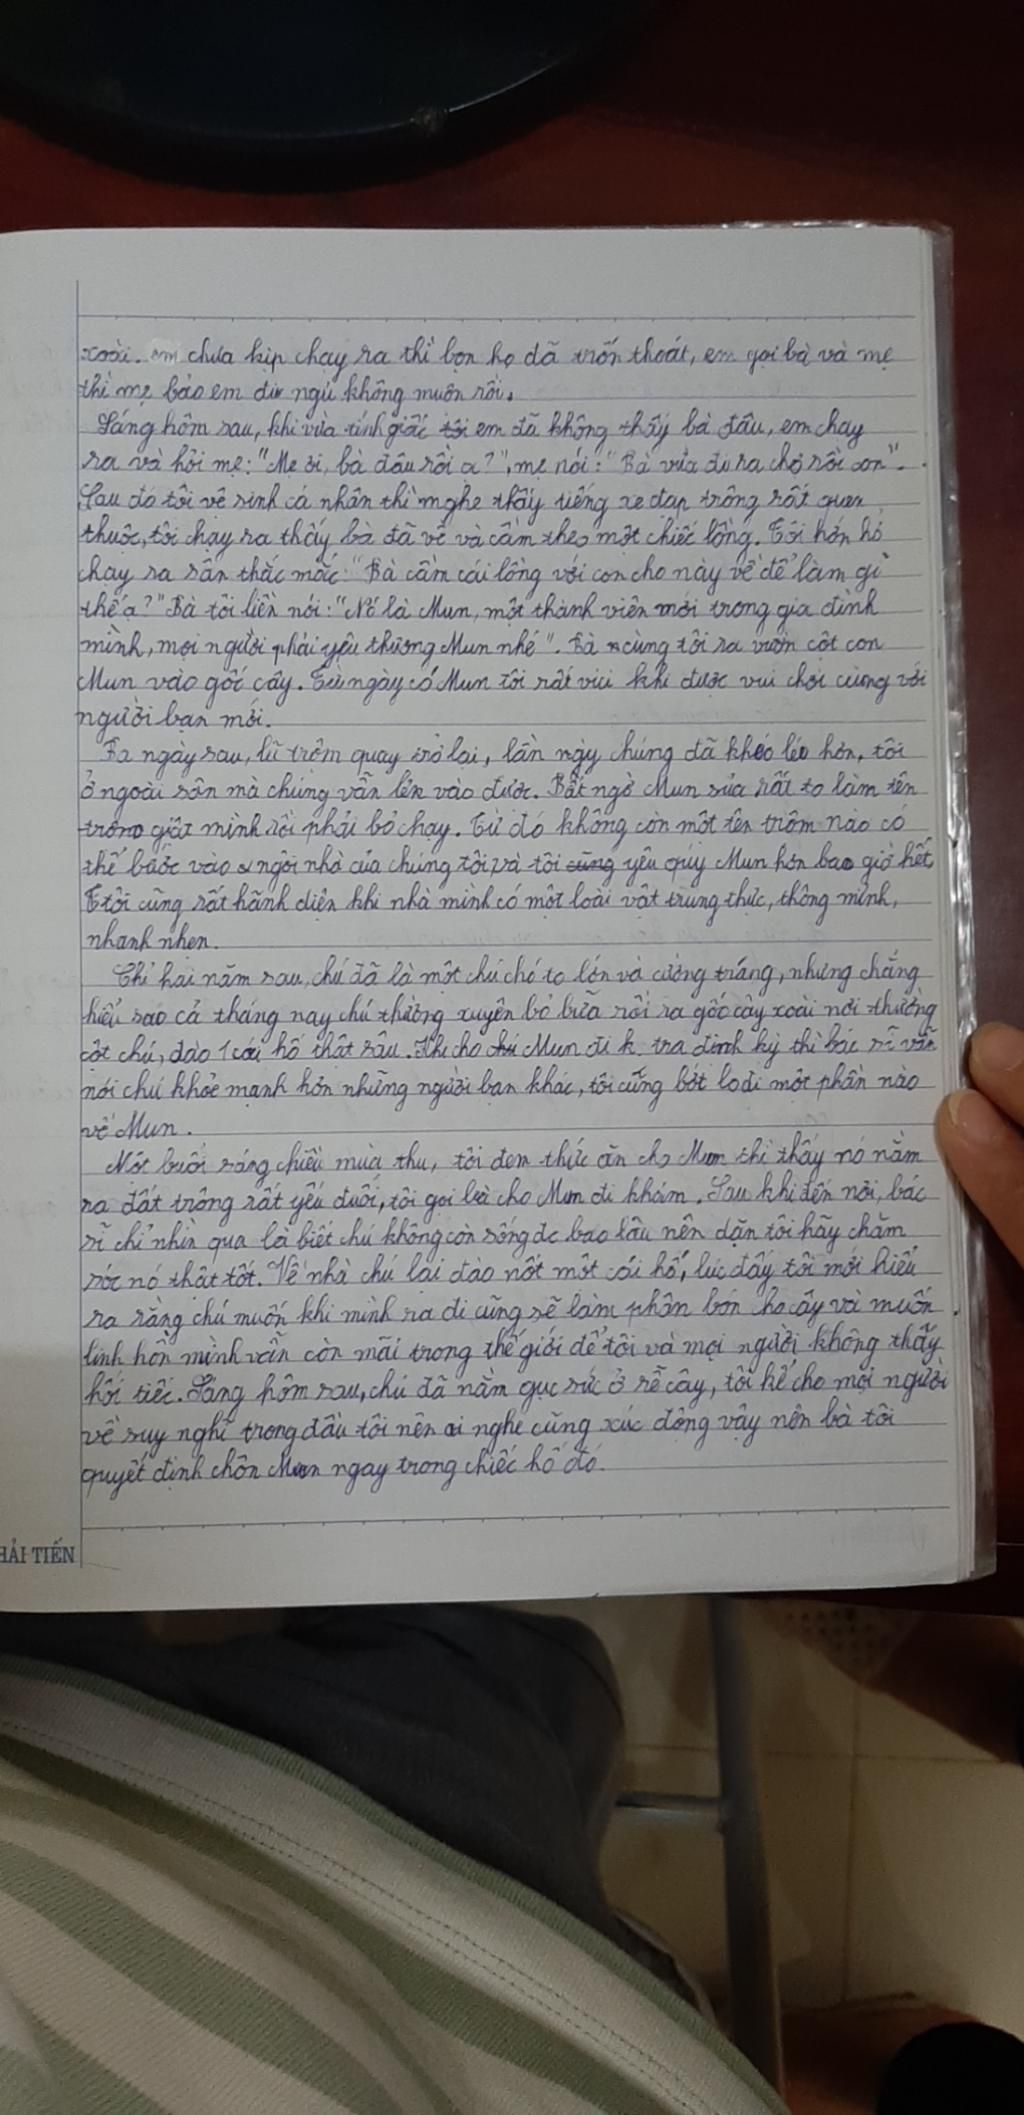 xoài. em chưa kịp chạy ra thì bọn họ đã trốn thoát, em gọi bà và mẹ
thì mẹ bảo em đi ngủ không muộn rồi.
Sáng hôm sau, khi vừa tỉnh giấc tôi em đã không thấy bà đâu, em chạy
ra và hỏi mẹ: "Mẹ ơi, bà đâu rồi ạ?", mẹ nói: "Bà vừa đi ra chợ rồi con".
Sau đó tôi vệ sinh cá nhân thì nghe thấy tiếng xe đạp trông rất quen
thuộc, tôi chạy ra thấy bà đã về và cầm theo một chiếc lồng. Tôi hớn hở
chạy ra sân thắc mắc: "Bà cầm cái lồng với con cho này về để làm gì
thế ạ?" Bà tôi liền nói: "Nó là Mun, một thành viên mới trong gia đình
mình, mọi người phải yêu thương Mun nhé". Bà cùng tôi ra vườn cột con
Mun vào gốc cây. Từ ngày có Mun tôi rất vui khi được vui chơi cùng với
người bạn mới.
Ba ngày sau, lũ trộm quay trở lại, lần này chúng đã khéo léo hơn, tôi
ở ngoài sân mà chúng vẫn lẻn vào được. Bất ngờ Mun sủa rất to làm tên
trộm giật mình rồi phải bỏ chạy. Từ đó không còn một tên trộm nào có
thể bước vào ngôi nhà của chúng tôi và tôi cũng yêu quý Mun hơn bao giờ hết
Tôi cũng rất hãnh diện khi nhà mình có một loài vật trung thực, thông minh,
nhanh nhẹn.
Chỉ hai năm sau, chú đã là một chú chó to lớn và cường tráng, nhưng chẳng
hiểu sao cả tháng nay chú thường xuyên bỏ bữa rồi ra gốc cây xoài nơi thường
cột chú, đào 1 cái hố thật sâu. Khi cho chú Mun đi k. tra định kỳ thì bác sĩ vẫn
nói chú khỏe mạnh hơn những người bạn khác, tôi cũng bớt lo đi một phần nào
về Mun.
Một buổi sáng chiều mùa thu, tôi đem thức ăn cho Mun thì thấy nó nằm
ra đất trông rất yếu đuối, tôi gọi bà cho Mun đi khám. Sau khi đến nơi, bác
sĩ chỉ nhìn qua là biết chú không còn sống đc bao lâu nên dặn tôi hãy chăm
sóc nó thật tốt. Về nhà chú lại đào nốt một cái hố, lúc đấy tôi mới hiểu
ra rằng chú muốn khi mình ra đi cũng sẽ làm phân bón cho cây và muốn
linh hồn mình vẫn còn mãi trong thế giới để tôi và mọi người không thấy
hối tiếc. Sáng hôm sau, chú đã nằm gục sức ở rễ cây, tôi kể cho mọi người
về suy nghĩ trong đầu tôi nên ai nghe cũng xúc động vậy nên bà tôi
quyết định chôn Mun ngay trong chiếc hố đó.
HẢI TIẾN